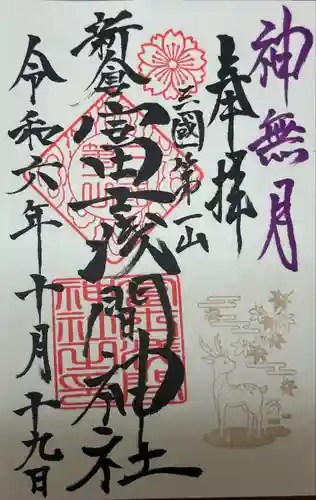 神無月
奉拝
三國第一山
新倉
富士浅間神社
令和六年十月十九日